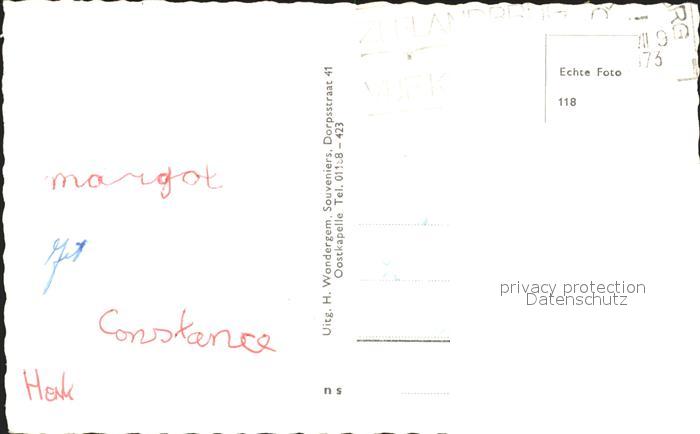 margot
Jet
Constance
Henk
Uitg. H. Wondergem, Souveniers, Dorpsstraat 41
Oostkapelle Tel. 01188 - 423
n s
Echte Foto
118
privacy protection
Datenschutz